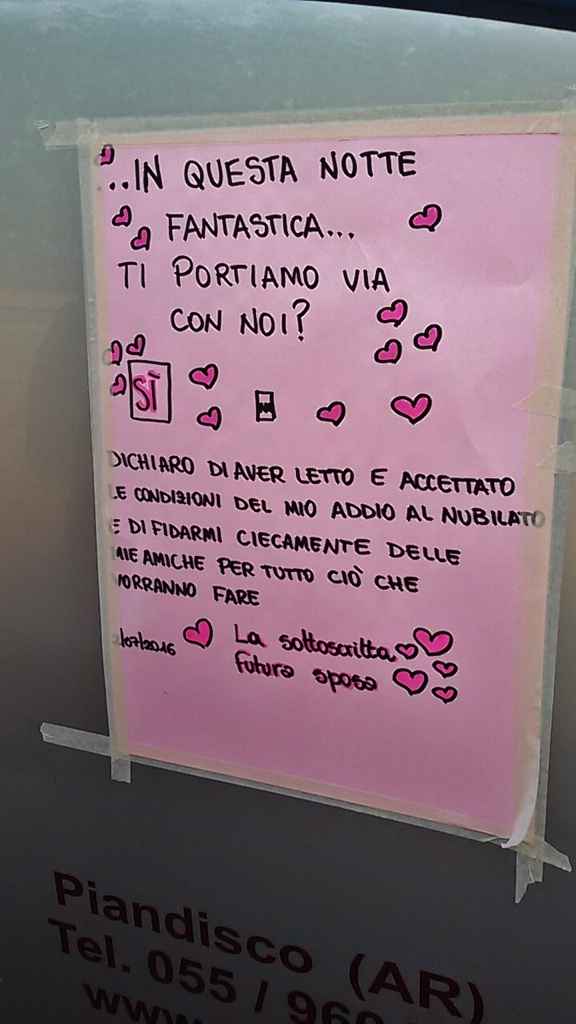 ...IN QUESTA NOTTE
FANTASTICA...
TI PORTIAMO VIA
CON NOI?
SÌ
DICHIARO DI AVER LETTO E ACCETTATO
LE CONDIZIONI DEL MIO ADDIO AL NUBILATO
E DI FIDARMI CIECAMENTE DELLE
MIE AMICHE PER TUTTO CIÒ CHE
VORRANNO FARE
/07/2016
La sottoscritta
futura sposa
Piandisco (AR)
Tel. 055 / 960
www.